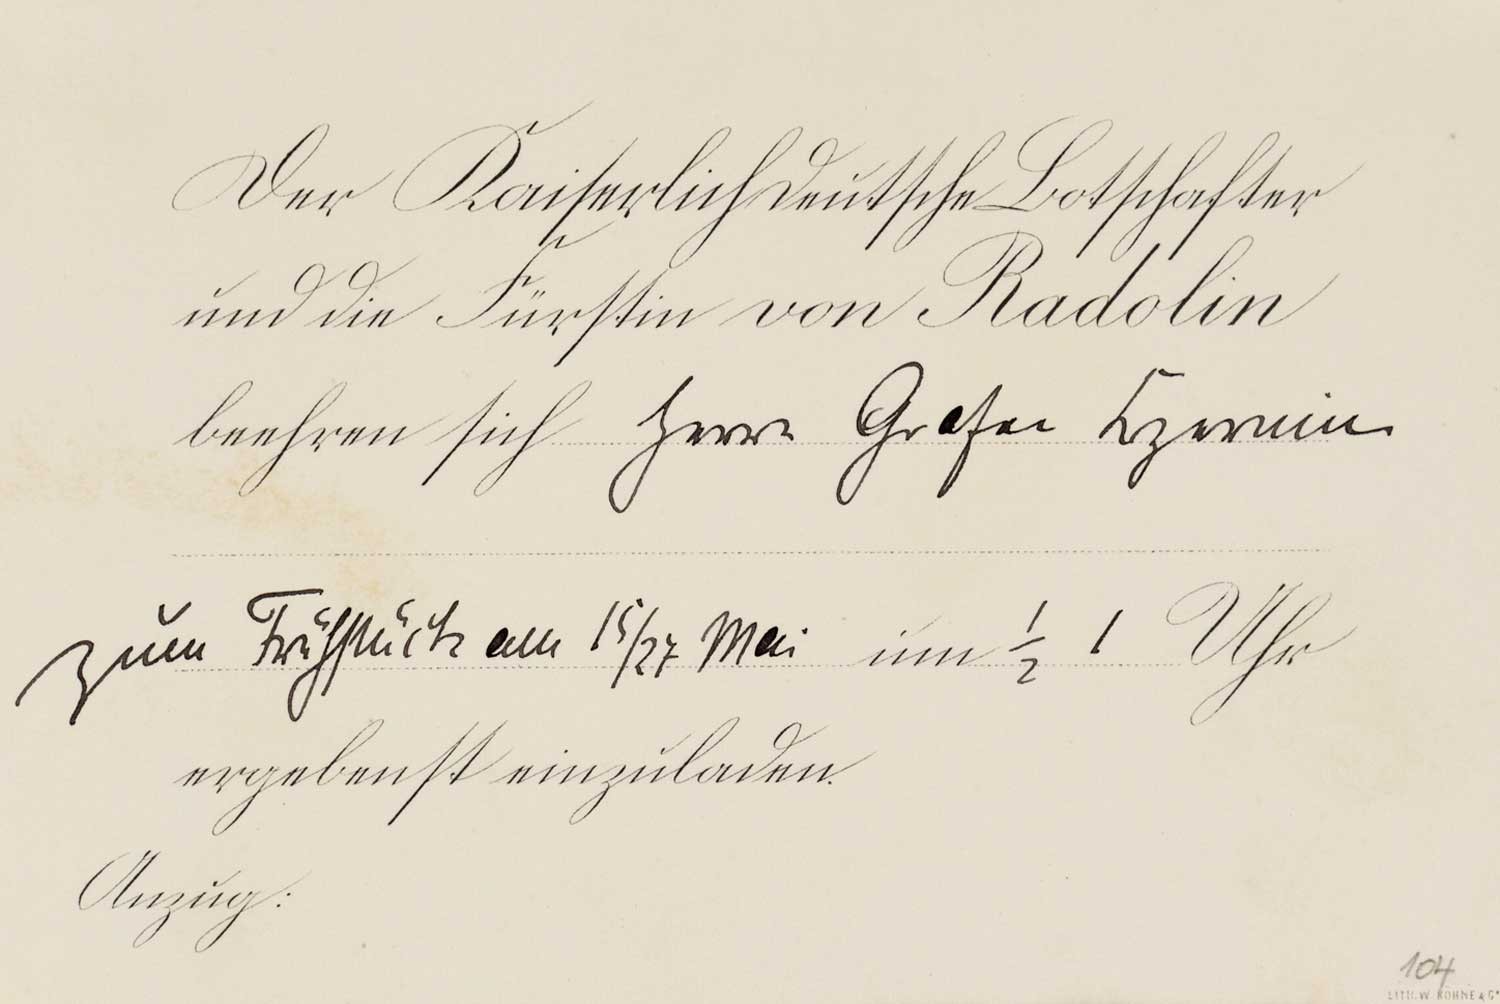 Der Kaiserlich deutsche Botschafter
und die Fürstin von Radolin
beehren sich Herrn Grafen Czernin
zum Frühstück am 15/27 Mai um ½ 1 Uhr
ergebenst einzuladen.
Anzug:
104
LITH. W. KÖHNE & Cº